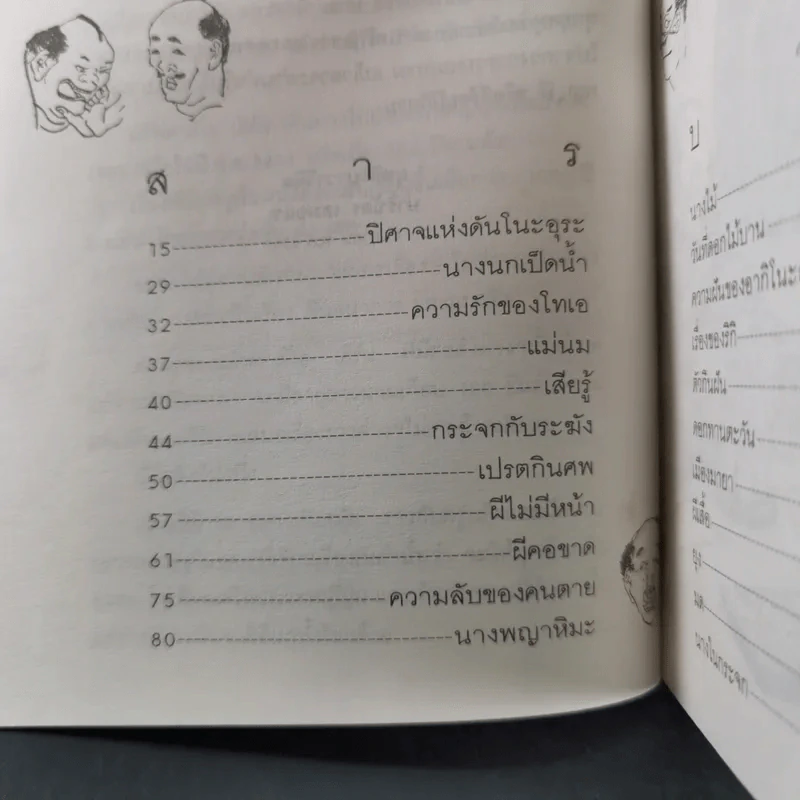 ส า ร
15 ปิศาจแห่งดันโนะอุระ
29 นางนกเป็ดน้ำ
32 ความรักของโทเอ
37 แม่นม
40 เสียรู้
44 กระจกกับระฆัง
50 เปรตกินศพ
57 ผีไม่มีหน้า
61 ผีคอขาด
75 ความลับของคนตาย
80 นางพญาหิมะ
บ
นางไม้
วันที่ดอกไม้บาน
ความฝันของอากิโนะ
เรื่องของริกิ
ตัวกินฝัน
ดอกทานตะวัน
เมืองมายา
ผีเสื้อ
ยุง
มด
นางในกระจก